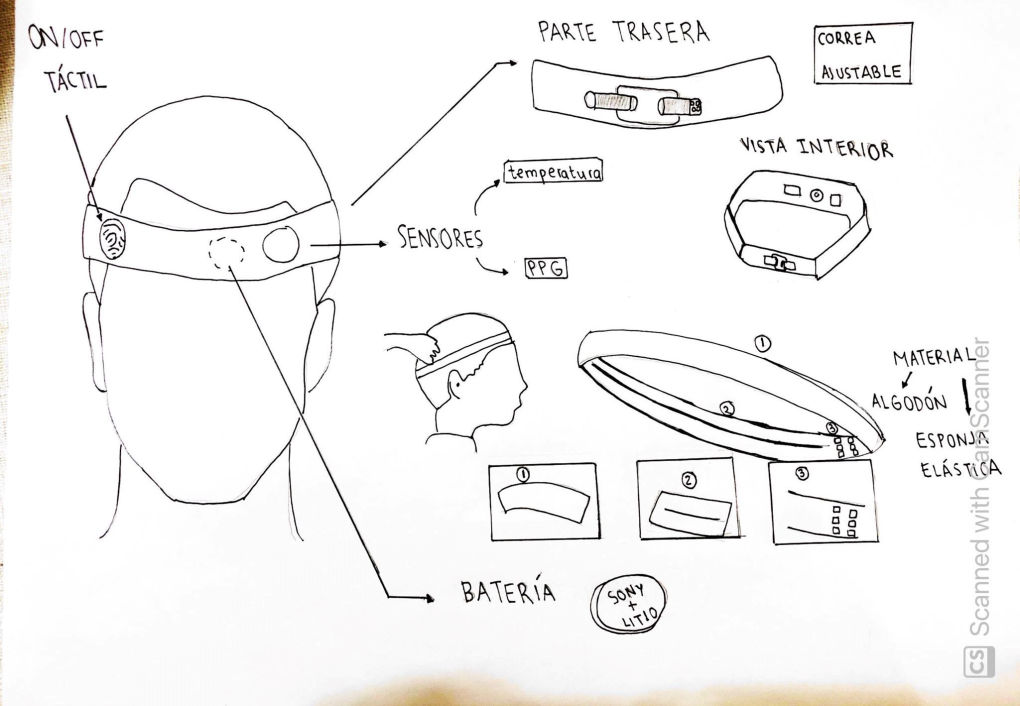 ON/OFF
TÁCTIL
PARTE TRASERA
CORREA
AJUSTABLE
VISTA INTERIOR
temperatura
SENSORES
PPG
1
2
3
MATERIAL
ALGODÓN
ESPONJA
ELÁSTICA
1
2
3
BATERÍA
SONY
+
LITIO
CS Scanned with CamScanner